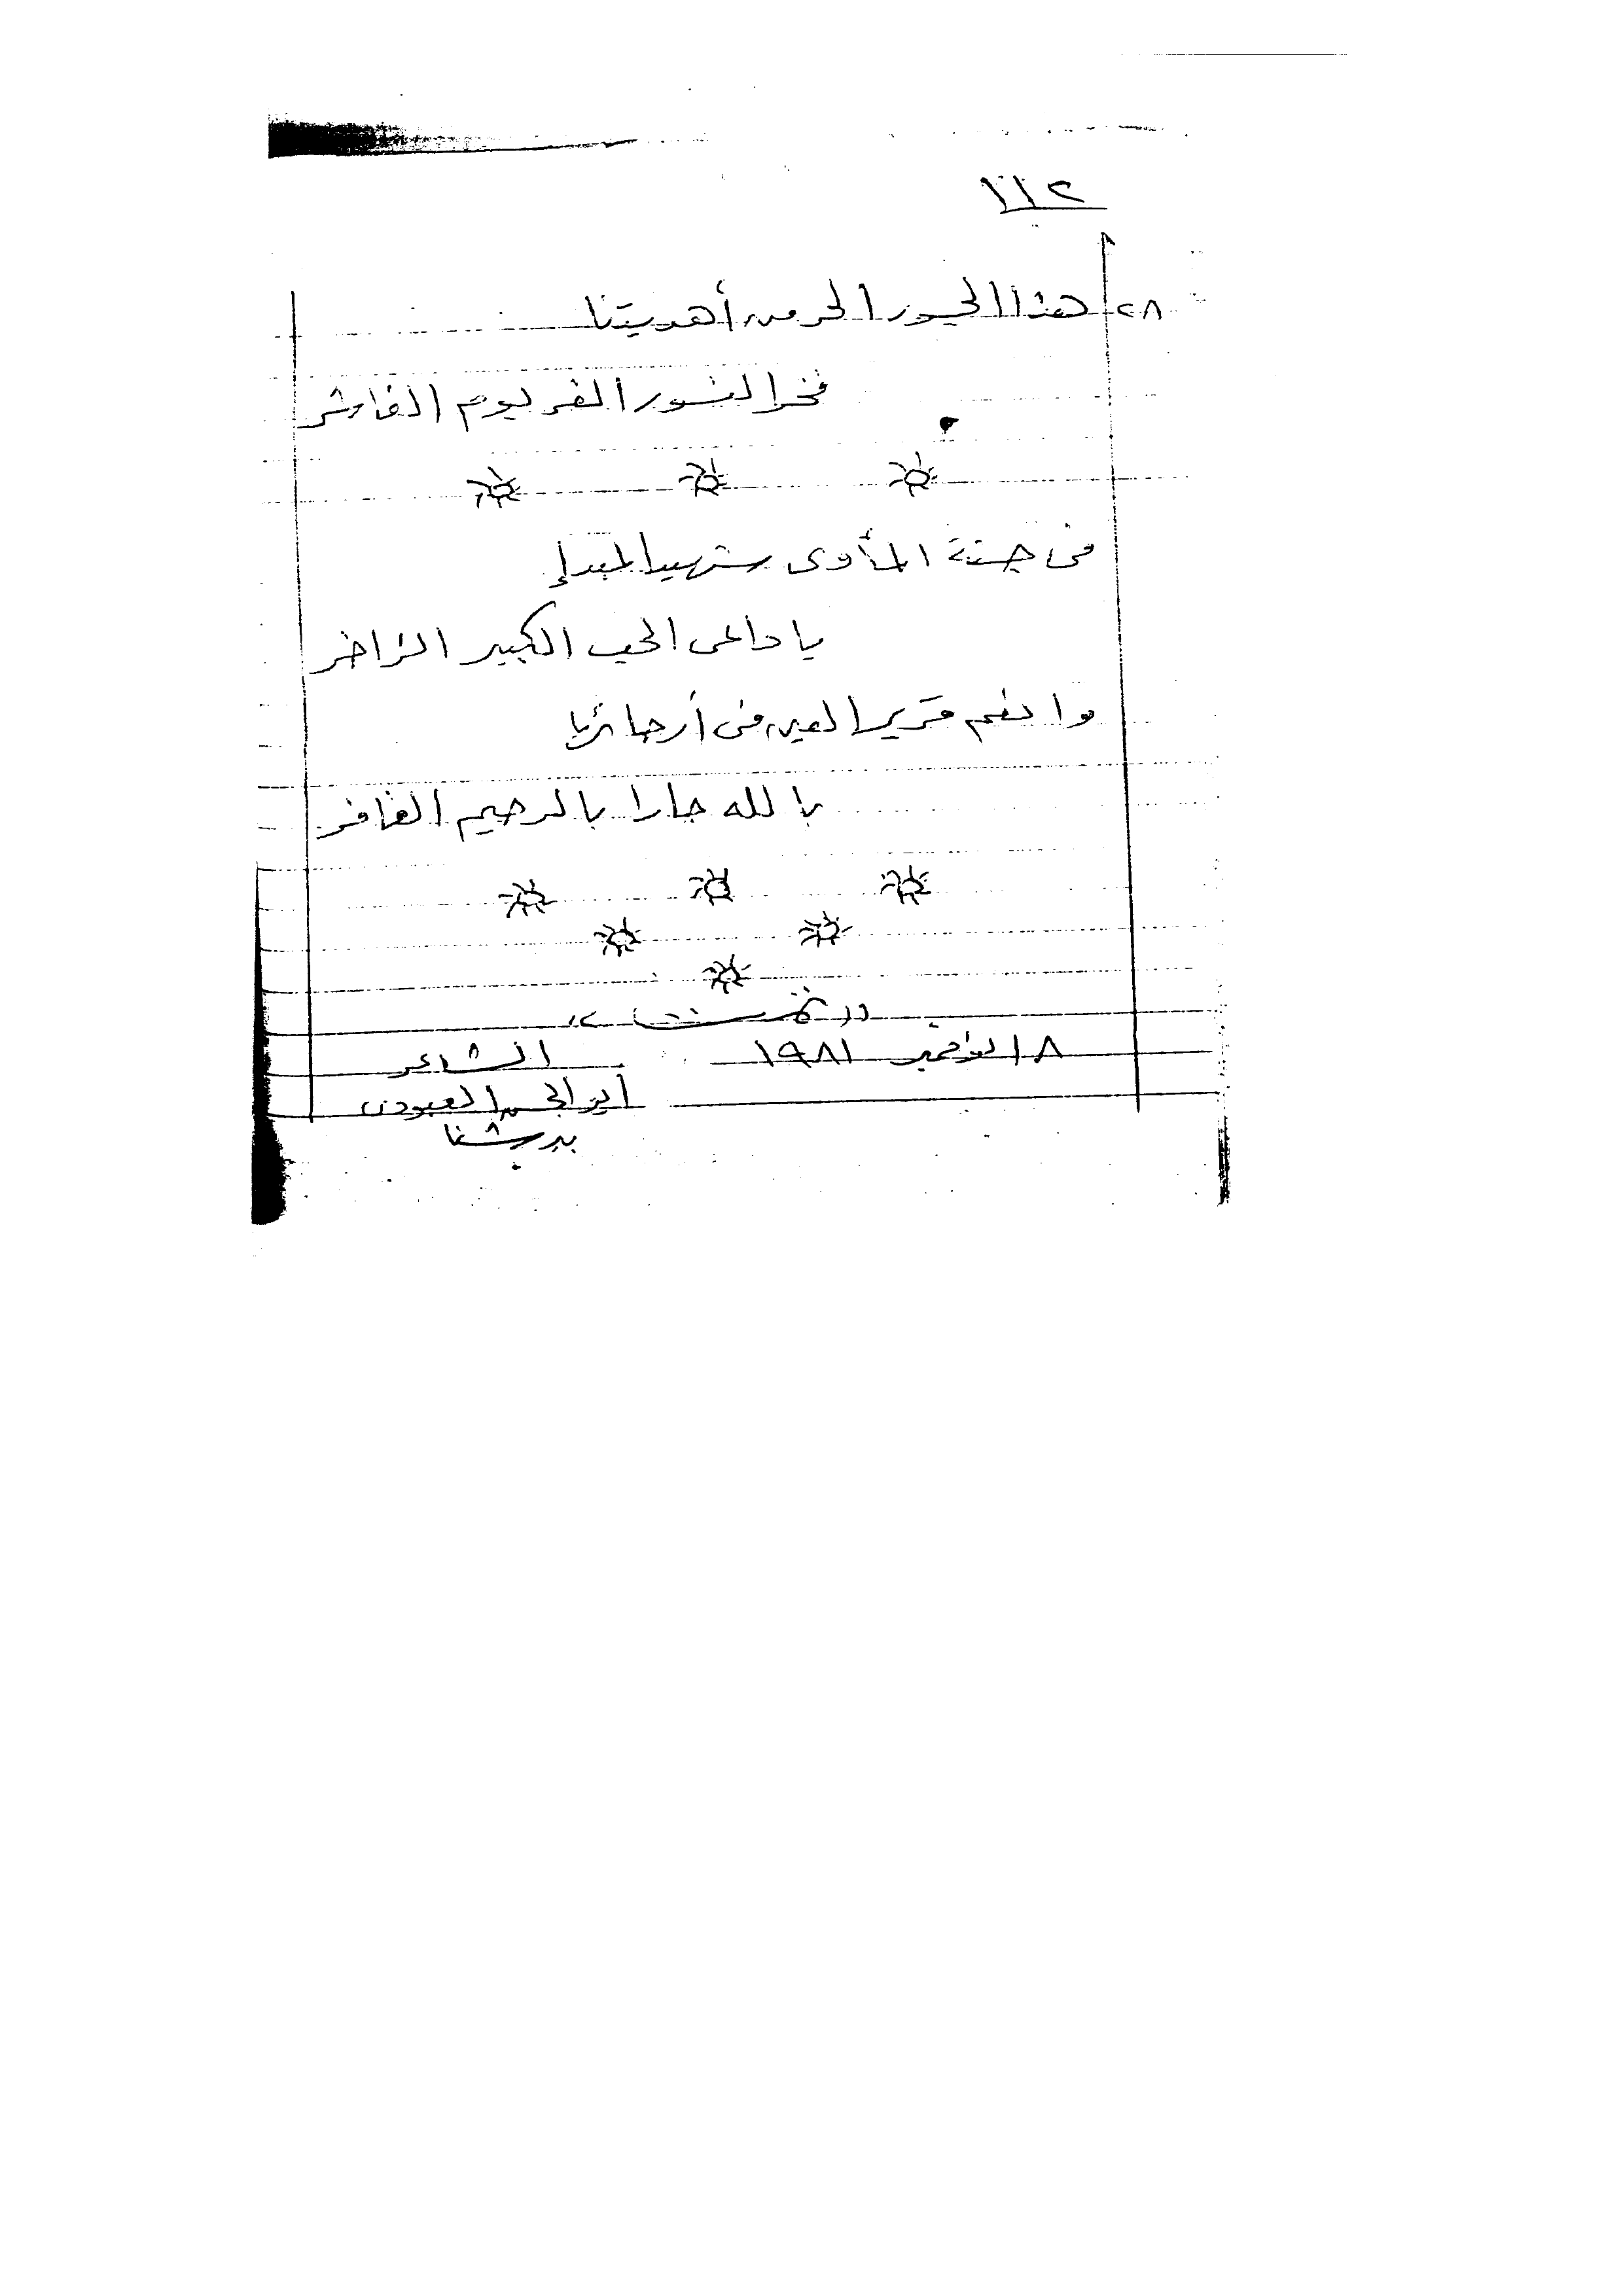 ١١٢
٢٨ هذا الجسور الحر من أهديتنا
فخر النسور الغر يوم الفاشر
فى جنة المأوى شهيد المبدإ
يا داعى الحب الكبير الزاخر
وانعم قرير العين فى أرجائها
بالله جارا بالرحيم الغافر
(( تمت ))
٨ نوفمبر ١٩٨١ الشاعر
أبو الحسن العبودى